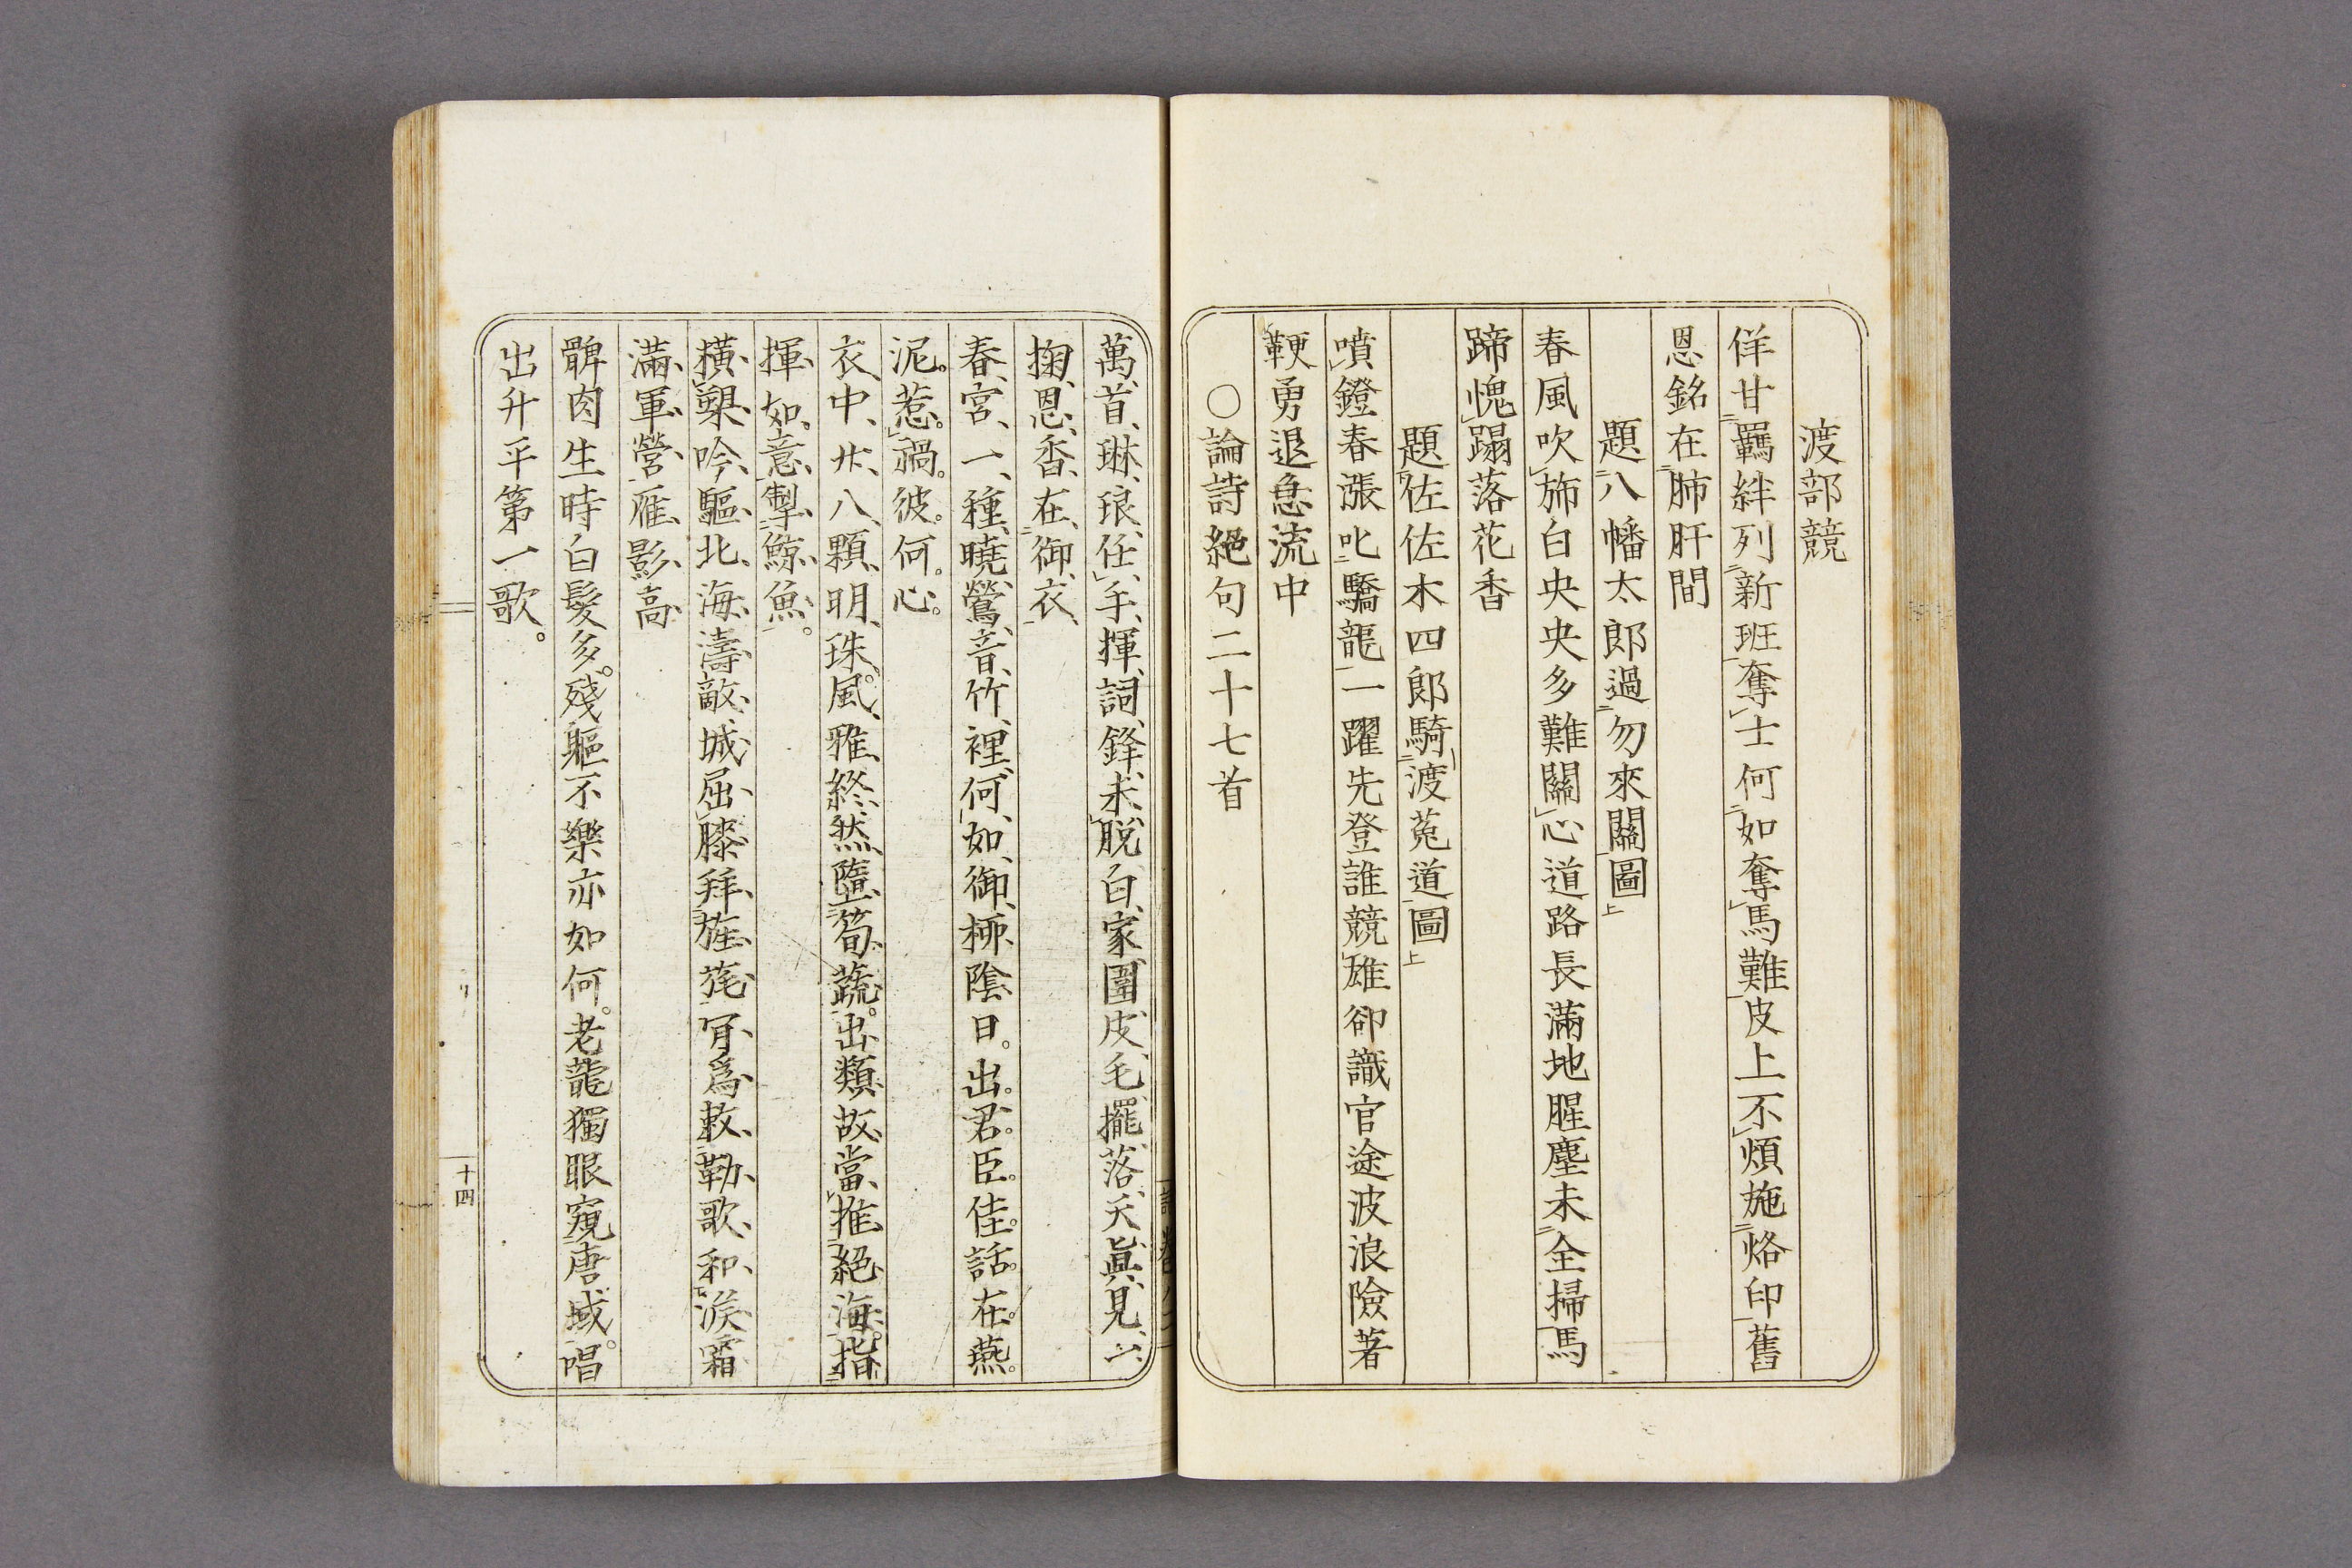 渡部競
佯甘羈絆列新班奪士何如奪馬難皮上不煩施烙印舊
恩銘在肺肝間
題八幡太郎過勿來關圖
春風吹旆白央央多難關心道路長滿地腥塵未全掃馬
蹄愧蹋落花香
題佐佐木四郎騎渡菟道圖
噴鐙春漲叱驕龍一躍先登誰競雄卻識官途波浪險著
鞭勇退急流中
○論詩絕句二十七首
萬首琳琅任手揮詞鋒未脫白家圍皮毛擺落天真見一
掬恩香在御衣
春宮一種曉鶯音竹裡何如御柳陰日出君臣佳話在燕
泥惹禍彼何心
衣中廿八顆明珠風雅終然墮筍蔬出類故當推絕海指
揮如意掣鯨魚
橫槊吟驅北海濤敵城屈膝拜旌旄肎爲敕勒歌和淚霜
滿軍營雁影高
髀肉生時白髮多殘軀不樂亦如何老龍獨眼窺唐域唱
出升平第一歌
十四